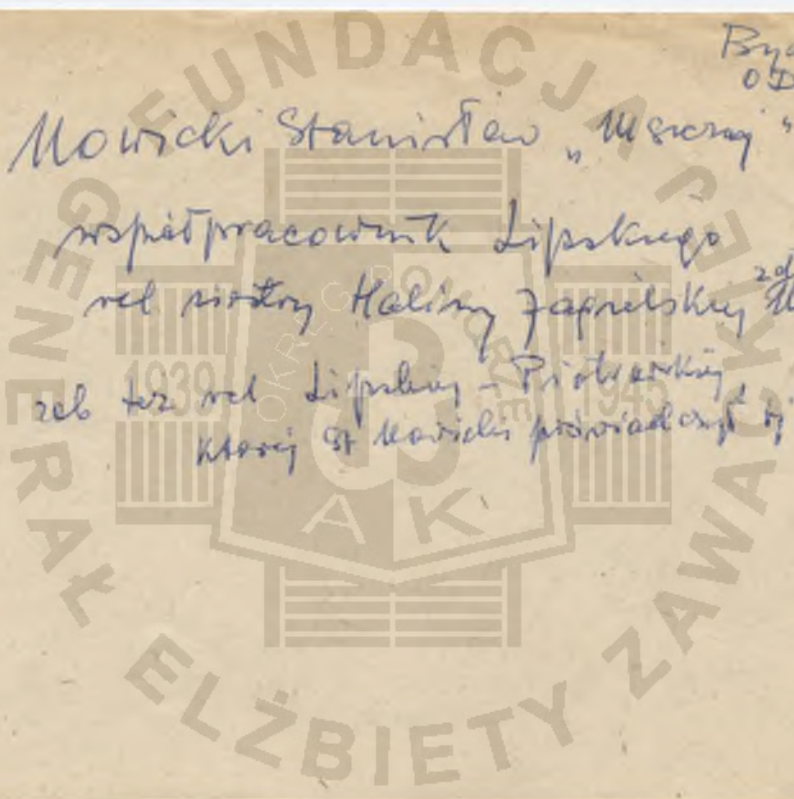 Byd
OD
Nowicki Stanisław „Mściwy"
współpracownik Lipskiego
rel siostry Haliny Zagrelskiej
zob też rel Lipskiej - Piotrowskiej,
której St Nowicki poświadczył
FUNDACJA GENERAŁ ELŻBIETY ZAWACKIEJ
OKRĘG POMORZE
1939 1945
AK